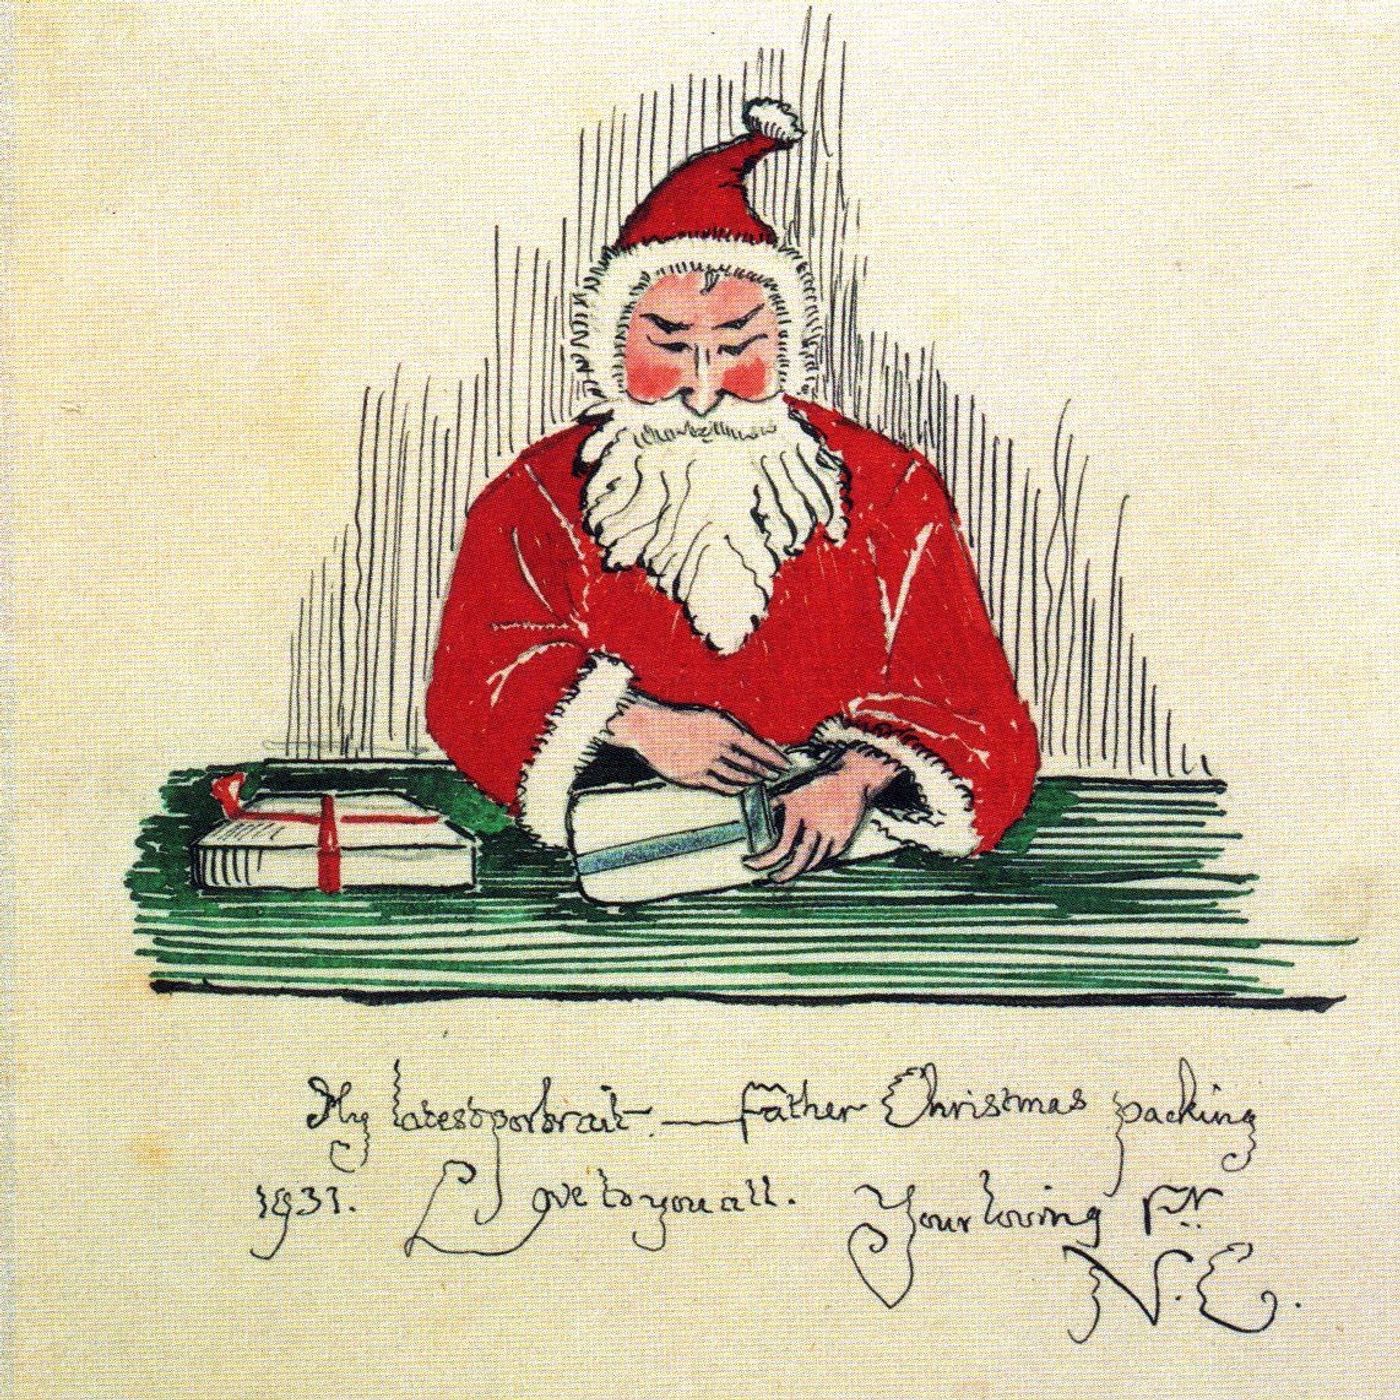 My latest portrait. — Father Christmas packing
1931. Love to you all. Your loving Fr.
N. C.